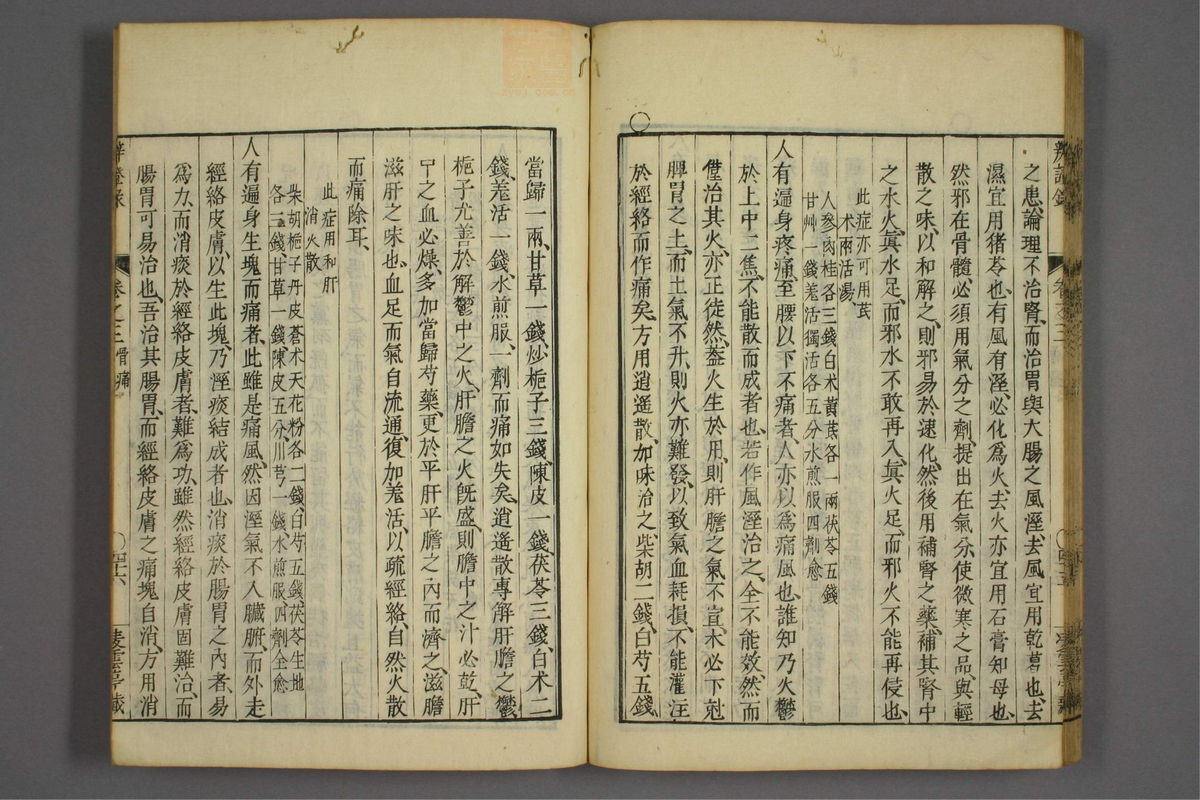 之患論理不治腎而治胃與大腸之風溼去風宜用乾葛也去
濕宜用猪苓也有風有溼必化爲火去火亦宜用石膏知母也
然邪在骨髓必須用氣分之劑提出在氣分使微寒之品與輕
散之味以和解之則邪易於速化然後用補腎之藥補其腎中
之水火眞水足而邪水不敢再入眞火足而邪火不能再侵也
此症亦可用芪
术兩活湯
人參肉桂各三錢白术黃芪各一兩茯苓五錢
甘艸一錢羗活獨活各五分水煎服四劑愈
人有遍身疼痛至腰以下不痛者人亦以爲痛風也誰知乃火鬱
於上中二焦不能散而成者也若作風溼治之全不能效然而
僅治其火亦正徒然葢火生於用則肝膽之氣不宣木必下尅
脾胃之土而土氣不升則火亦難發以致氣血耗損不能灌注
於經絡而作痛矣方用逍遙散加味治之柴胡二錢白芍五錢
當歸一兩甘草一錢炒梔子三錢陳皮一錢茯苓三錢白术二
錢羗活一錢水煎服一劑而痛如失矣逍遙散專解肝膽之鬱
梔子尤善於解鬱中之火肝膽之火旣盛則膽中之汁必乾肝
中之血必燥多加當歸芍藥更於平肝平膽之內而濟之滋膽
滋肝之味也血足而氣自流通復加羗活以疏經絡自然火散
而痛除耳
此症用和肝
消火散
柴胡梔子丹皮蒼术天花粉各二錢白芍五錢茯苓生地
各三錢甘草一錢陳皮五分川芎一錢水煎服四劑全愈
人有遍身生塊而痛者此雖是痛風然因溼氣不入臟腑而外走
經絡皮膚以生此塊乃溼痰結成者也消痰於腸胃之內者易
爲力而消痰於經絡皮膚者難爲功雖然經絡皮膚固難治而
腸胃可易治也吾治其腸胃而經絡皮膚之痛塊自消方用消
卷之三 骨痛
四六